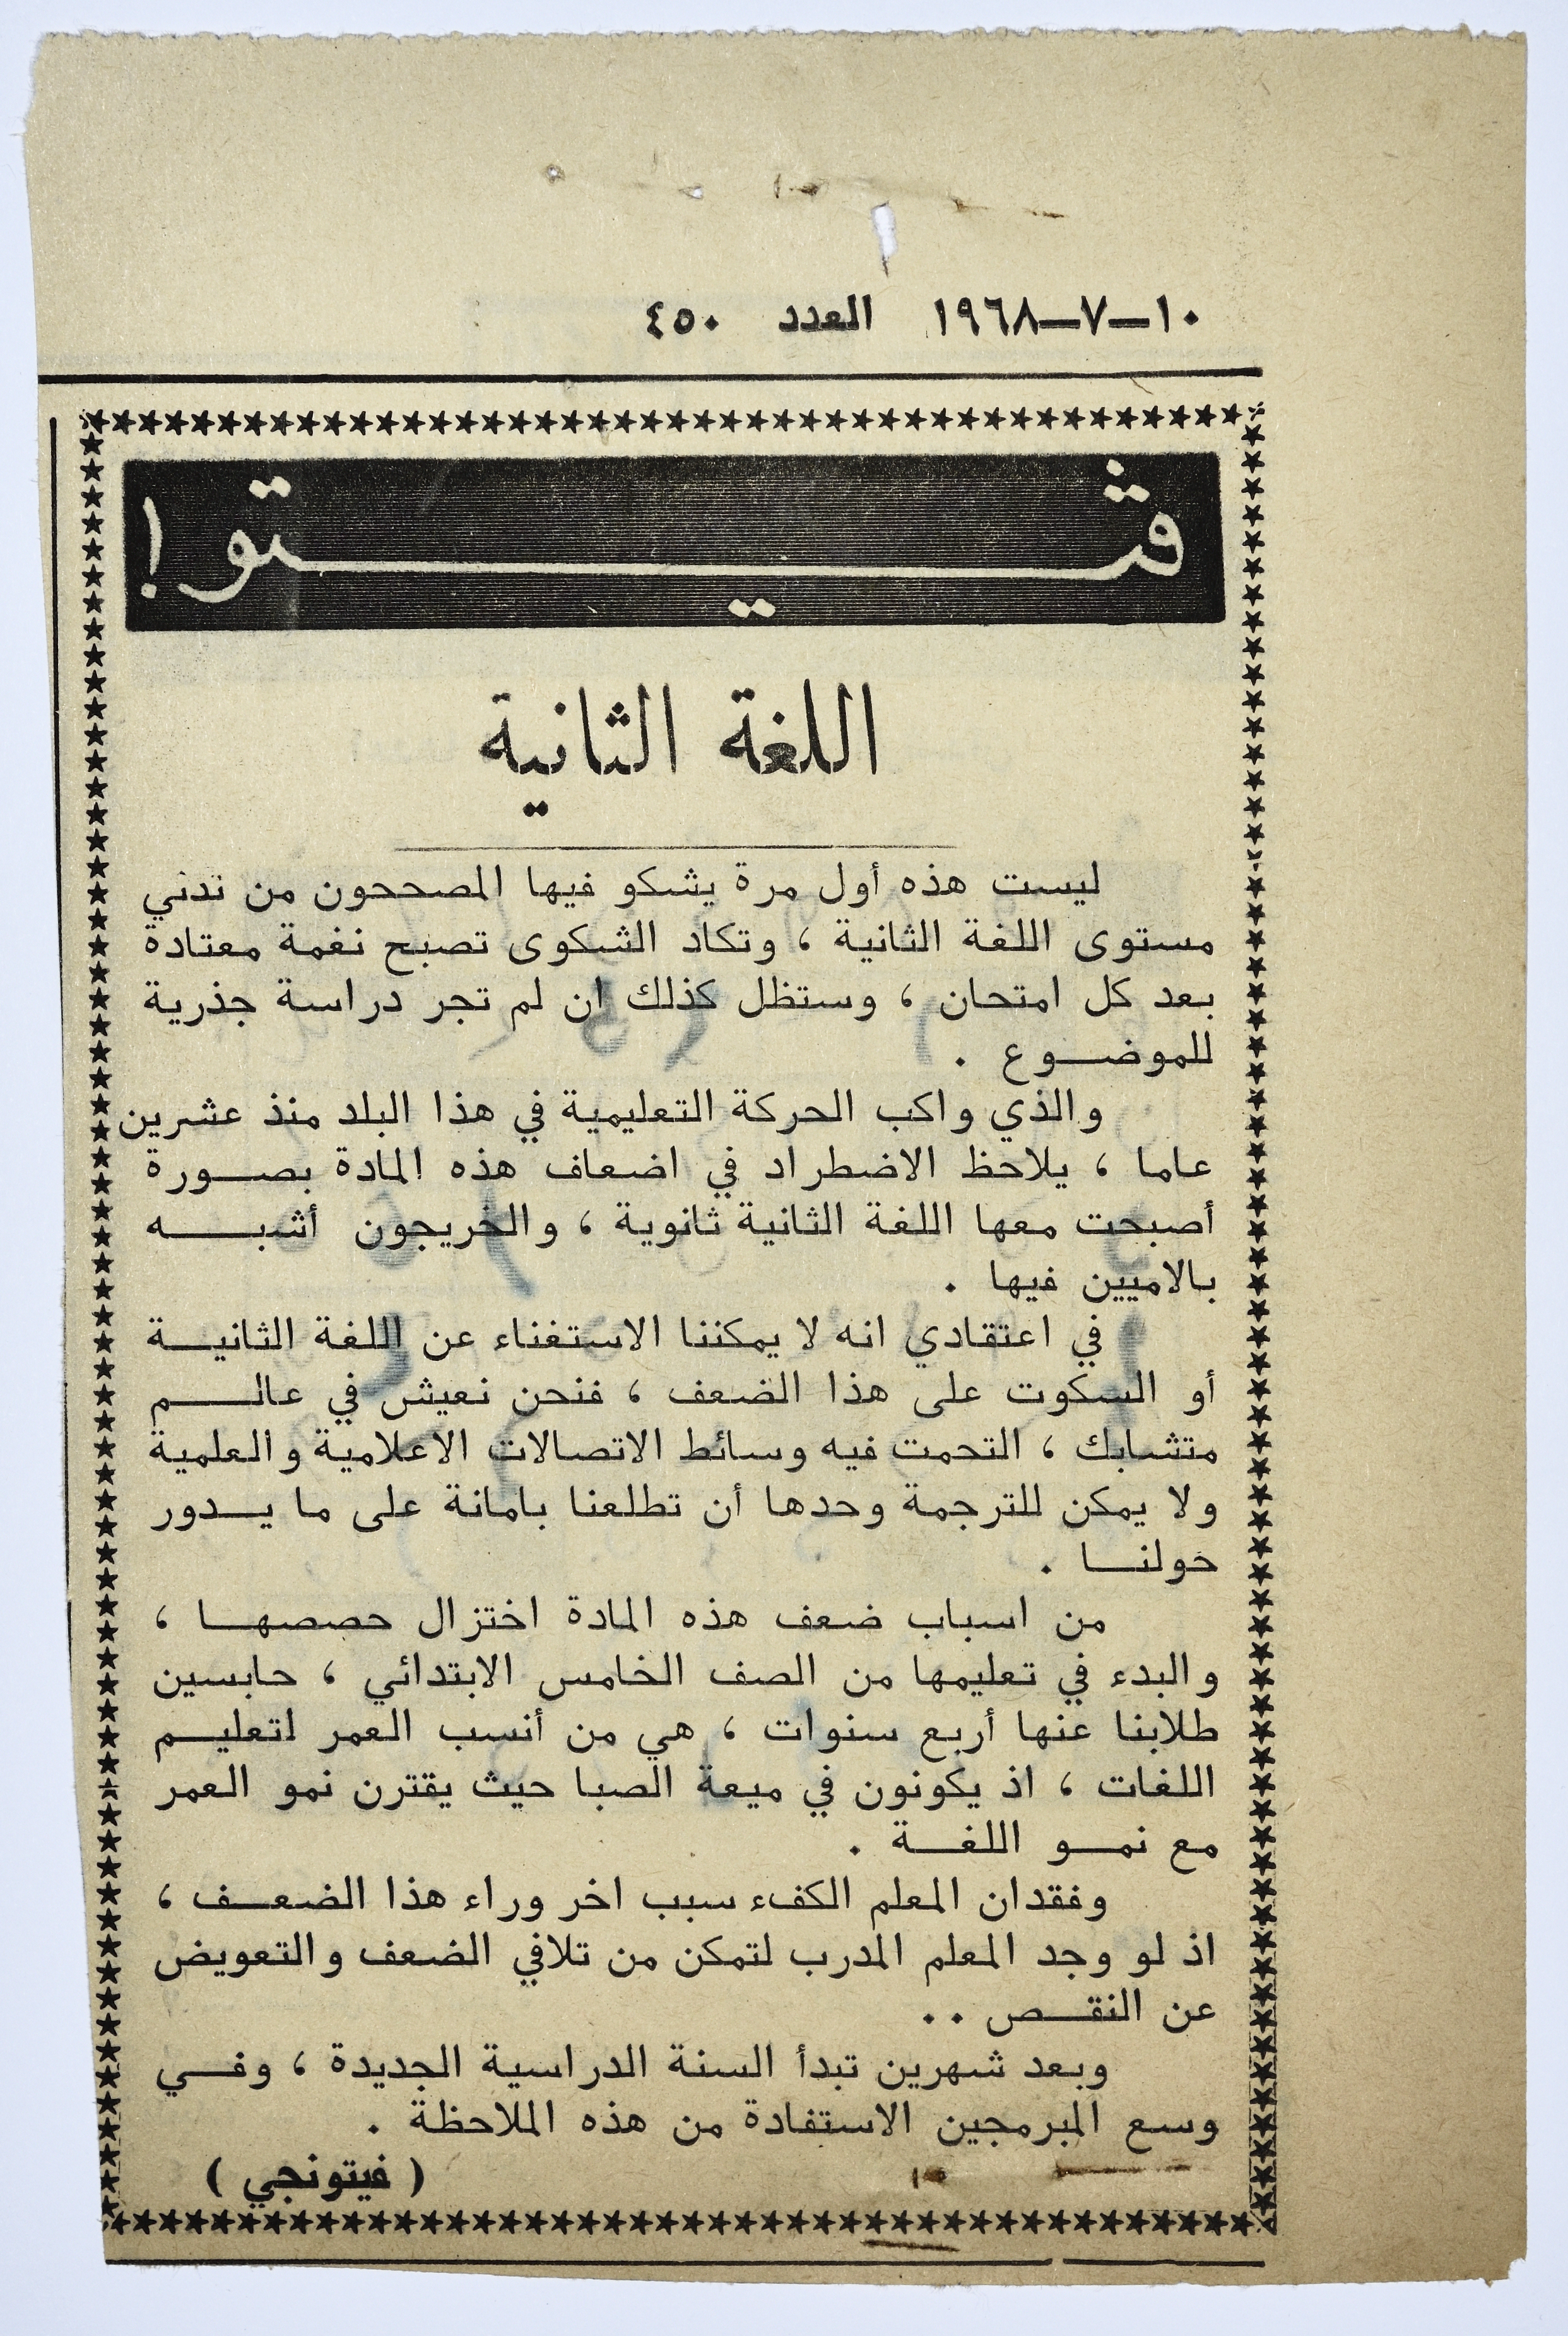 ١٠–٧–١٩٦٨ العدد ٤٥٠
ڤيتو!
اللغة الثانية
ليست هذه أول مرة يشكو فيها المصححون من تدني
مستوى اللغة الثانية ، وتكاد الشكوى تصبح نغمة معتادة
بعد كل امتحان ، وستظل كذلك ان لم تجر دراسة جذرية
للموضوع .
والذي واكب الحركة التعليمية في هذا البلد منذ عشرين
عاما ، يلاحظ الاضطراد في اضعاف هذه المادة بصورة
أصبحت معها اللغة الثانية ثانوية ، والخريجون أشبه
بالاميين فيها .
في اعتقادي انه لا يمكننا الاستغناء عن اللغة الثانية
أو السكوت على هذا الضعف ، فنحن نعيش في عالم
متشابك ، التحمت فيه وسائط الاتصالات الاعلامية والعلمية
ولا يمكن للترجمة وحدها أن تطلعنا بامانة على ما يدور
حولنا .
من اسباب ضعف هذه المادة اختزال حصصها ،
والبدء في تعليمها من الصف الخامس الابتدائي ، حابسين
طلابنا عنها أربع سنوات ، هي من أنسب العمر لتعليم
اللغات ، اذ يكونون في ميعة الصبا حيث يقترن نمو العمر
مع نمو اللغة .
وفقدان المعلم الكفء سبب اخر وراء هذا الضعف ،
اذ لو وجد المعلم المدرب لتمكن من تلافي الضعف والتعويض
عن النقص ..
وبعد شهرين تبدأ السنة الدراسية الجديدة ، وفي
وسع المبرمجين الاستفادة من هذه الملاحظة .
( فيتونجي )